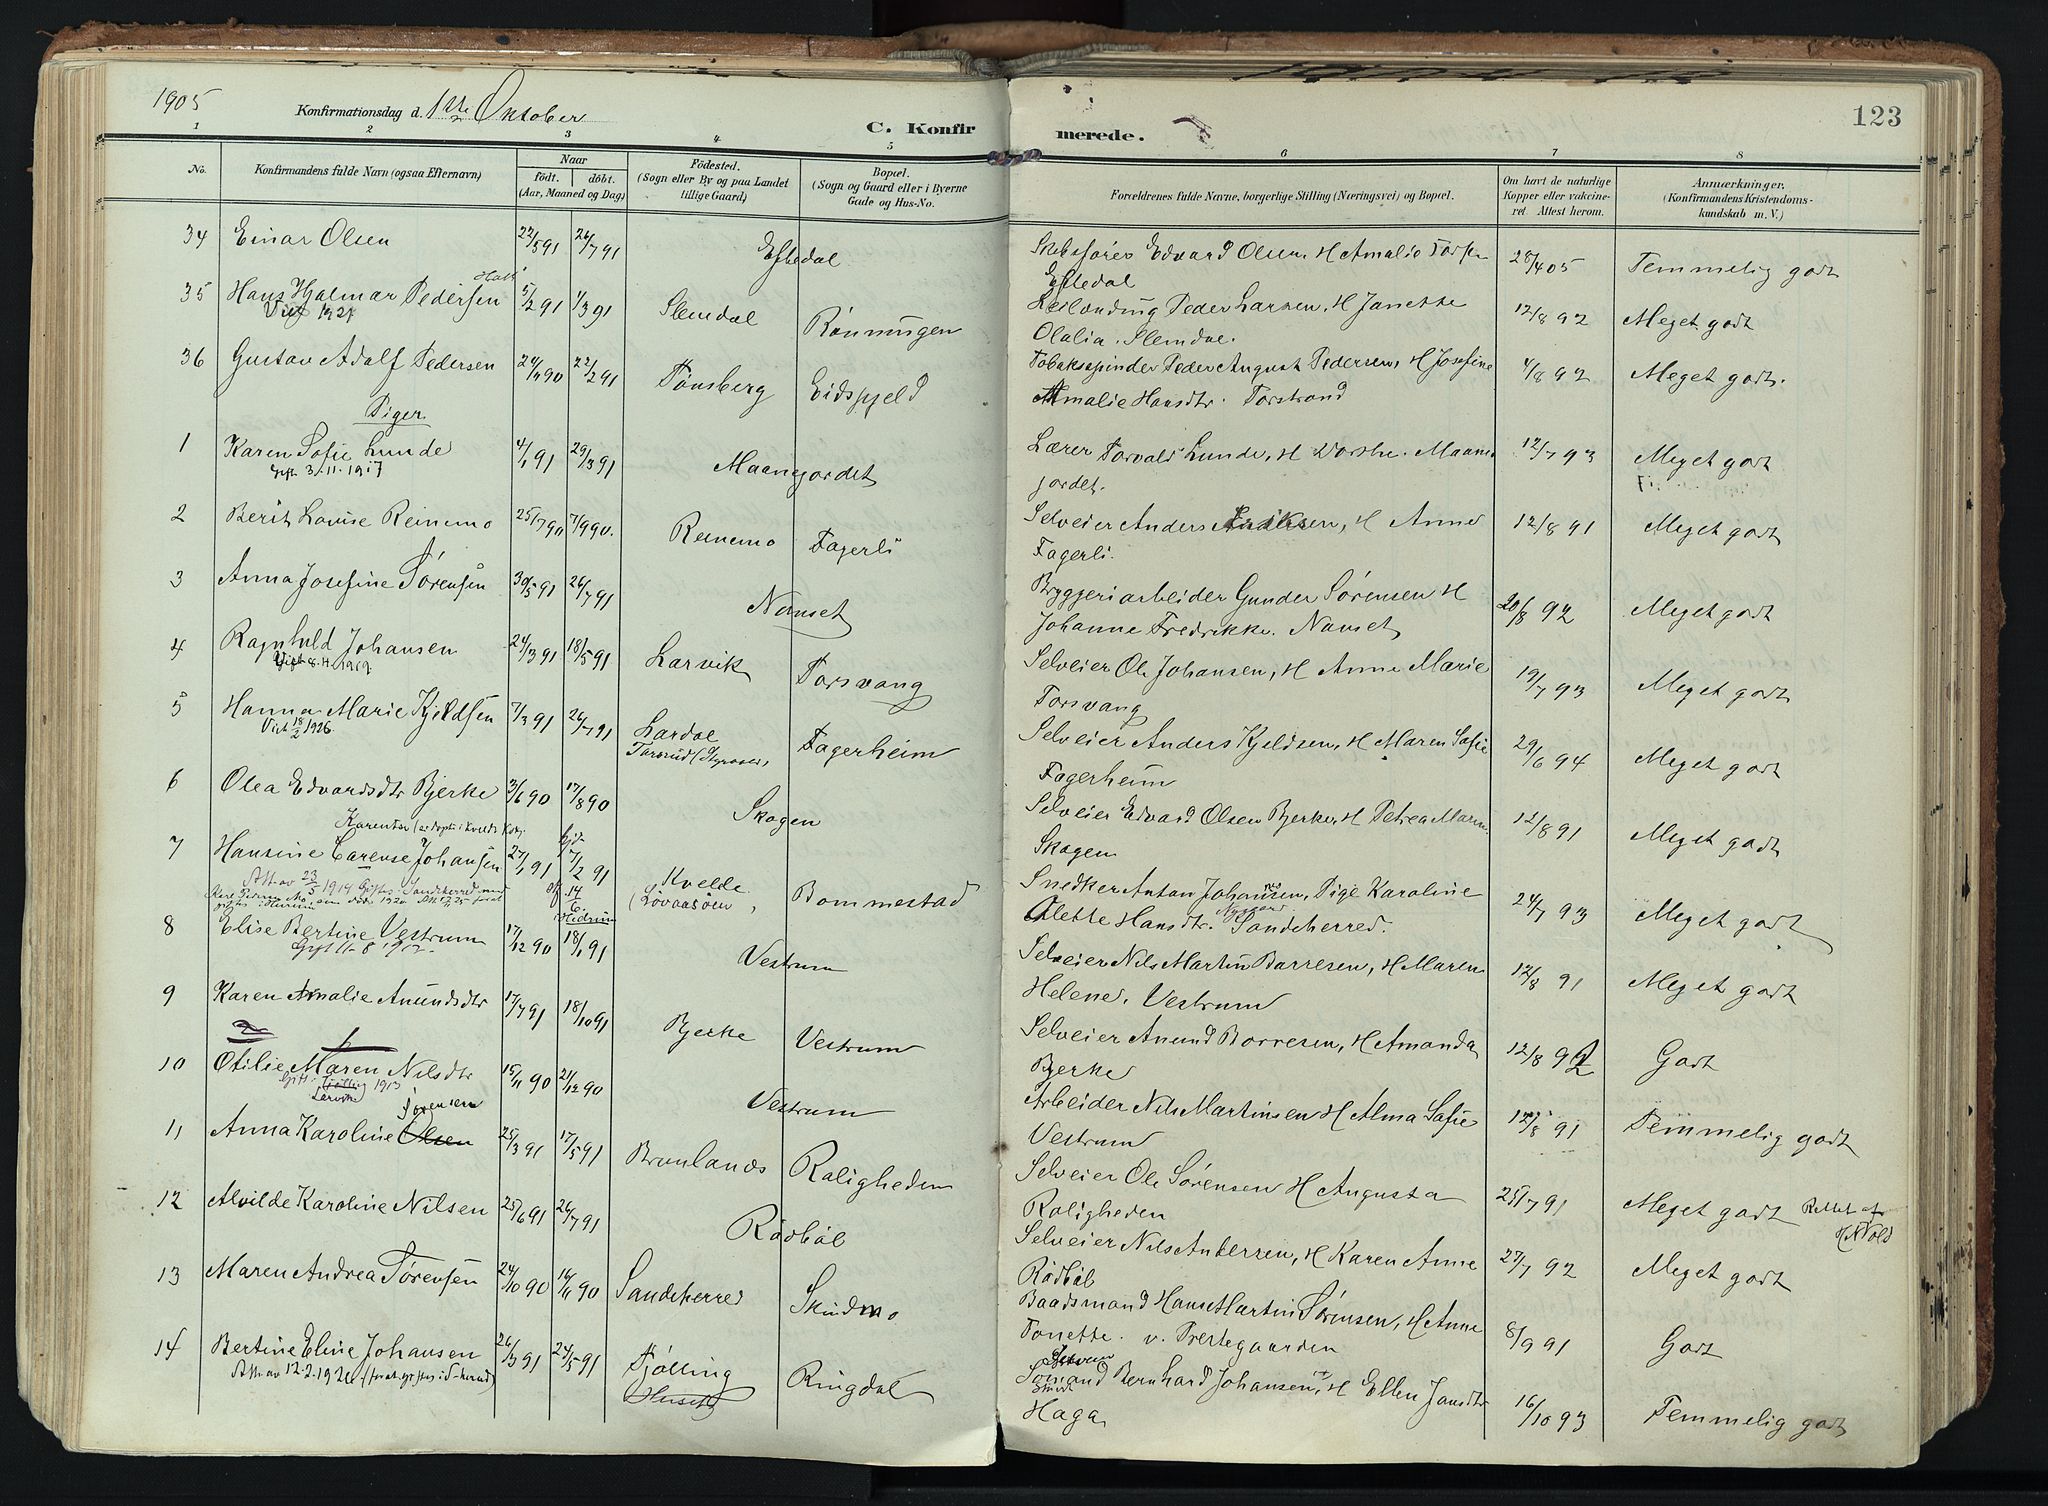 1905 Konfirmationsdag d. 1ste Oktober
C. Konfirmerede.
123
1 2 3 4 5 6 7 8
No. Konfirmandens fulde Navn (ogsaa Efternavn) Naar født. døbt. (Aar, Maaned og Dag) Fødested. (Sogn eller By og paa Landet tillige Gaard) Bopæl. (Sogn og Gaard eller i Byerne Gade og Hus-No. Forældrenes fulde Navne, borgerlige Stilling (Næringsvei) og Bopæl. Om havt de naturlige Kopper eller vakcineret Attest herom. Anmærkninger. (Konfirmandens Kristendomskundskab m. V.)
34 Einar Olsen 22/5 91 26/7 91 Eftedal Edvard Olsen, H Amalie Eftedal 28/4 05 Temmelig godt
35 Hans Hjalmar Pedersen 5/2 91 1/3 91 Slemdal Rønningen Leilænding Peder Larsen, H Janette
Viet 1921
Olalia. Slemdal. 12/8 92 Meget godt
36 Gustav Adolf Pedersen 24/11 90 22/2 91 Tønsberg Eidsfjeld Tobaksspinder Peder August Pedersen, H Josefine
Amalie Hansdtr. Torstrand 4/8 92 Meget godt.
Piger
1 Karen Sofie Lunde 4/1 91 29/3 91 Maanejordet Lærer Torvald Lunde, H Dorthe. Maane
Gift 3.11.1917
jordet. 12/7 93 Meget godt
2 Berit Lovise Reinemo 25/7 90 7/9 90. Reinemo Fagerli Selveier Anders Eriksen, H Anne
Fagerli. 12/8 91 Meget godt
3 Anna Josefine Sørensen 30/5 91 26/7 91 Nanset Bryggeriarbeider Gunder Sørensen H
Johanne Fredrikke. Nanset 20/8 92 Meget godt
4 Ragnhild Johansen 24/3 91 18/5 91 Larvik Torsvang Selveier Ole Johansen, H Anne Marie
Torsvang 19/7 93 Meget godt
5 Hanna Marie Kjeldsen 7/3 91 26/7 91 Lardal Fagerheim Selveier Anders Kjeldsen, H Maren Sofie
Viet 18/2 1926
Fagerheim 29/6 94 Meget godt
6 Olea Edvardsdtr Bjerke 3/6 90 17/8 90 Skogen Selveier Edvard Olsen Bjerke, H Petrea Maren
Skogen 12/8 91 Meget godt
7 Hansine Carense Johansen 27/1 91 7/2 91 Kvelde Bommestad Snedker Anton Johansen, Pige Karoline
Olette Hansdtr. Sandeherred. 24/7 93 Meget godt
8 Elise Bertine Vestrum 17/12 90 18/1 91 Vestrum Selveier Nils Martin Borresen, H Maren
Helene, Vestrum 12/8 91 Meget godt
9 Karen Amalie Anundsdtr 17/7 91 18/10 91 Bjerke Vestrum Selveier Anund Borresen, H Amanda
Bjerke 12/8 92 Godt
10 Otilie Maren Nilsdtr 15/11 90 21/12 90 Vestrum Arbeider Nils Martinsen H Alma Sofie
Gift i Tjølling 1913
Larvik
Vestrum 12/8 91 Temmelig godt
11 Anna Karoline Olsen Sørensen 25/3 91 17/5 91 Brunlanes Roligheden Selveier Ole Sørensen H Augusta
Roligheden 25/7 91 Meget godt Rettet af
12 Alvilde Karoline Nilsen 25/6 91 26/7 91 Rødbøl Selveier Nils Andersen, H Karen Anne
Rødbøl 27/7 92 Meget godt
13 Maren Andrea Sørensen 24/10 90 16/11 90 Sandeherred Skindmo Baadsmand Hans Martin Sørensen, H Anne
Tonette. v. Prestegaarden 8/9 91 Godt
14 Bertine Eline Johansen 26/3 91 24/5 91 Tjølling Ringdal Sømand Bernhard Johansen, H Ellen Jansdtr
Haga 16/10 93 Temmelig godt